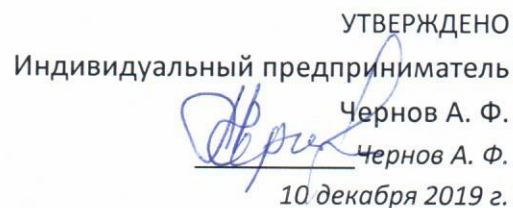 УТВЕРЖДЕНО
Индивидуальный предприниматель
Чернов А. Ф.
Чернов А. Ф.
10 декабря 2019 г.